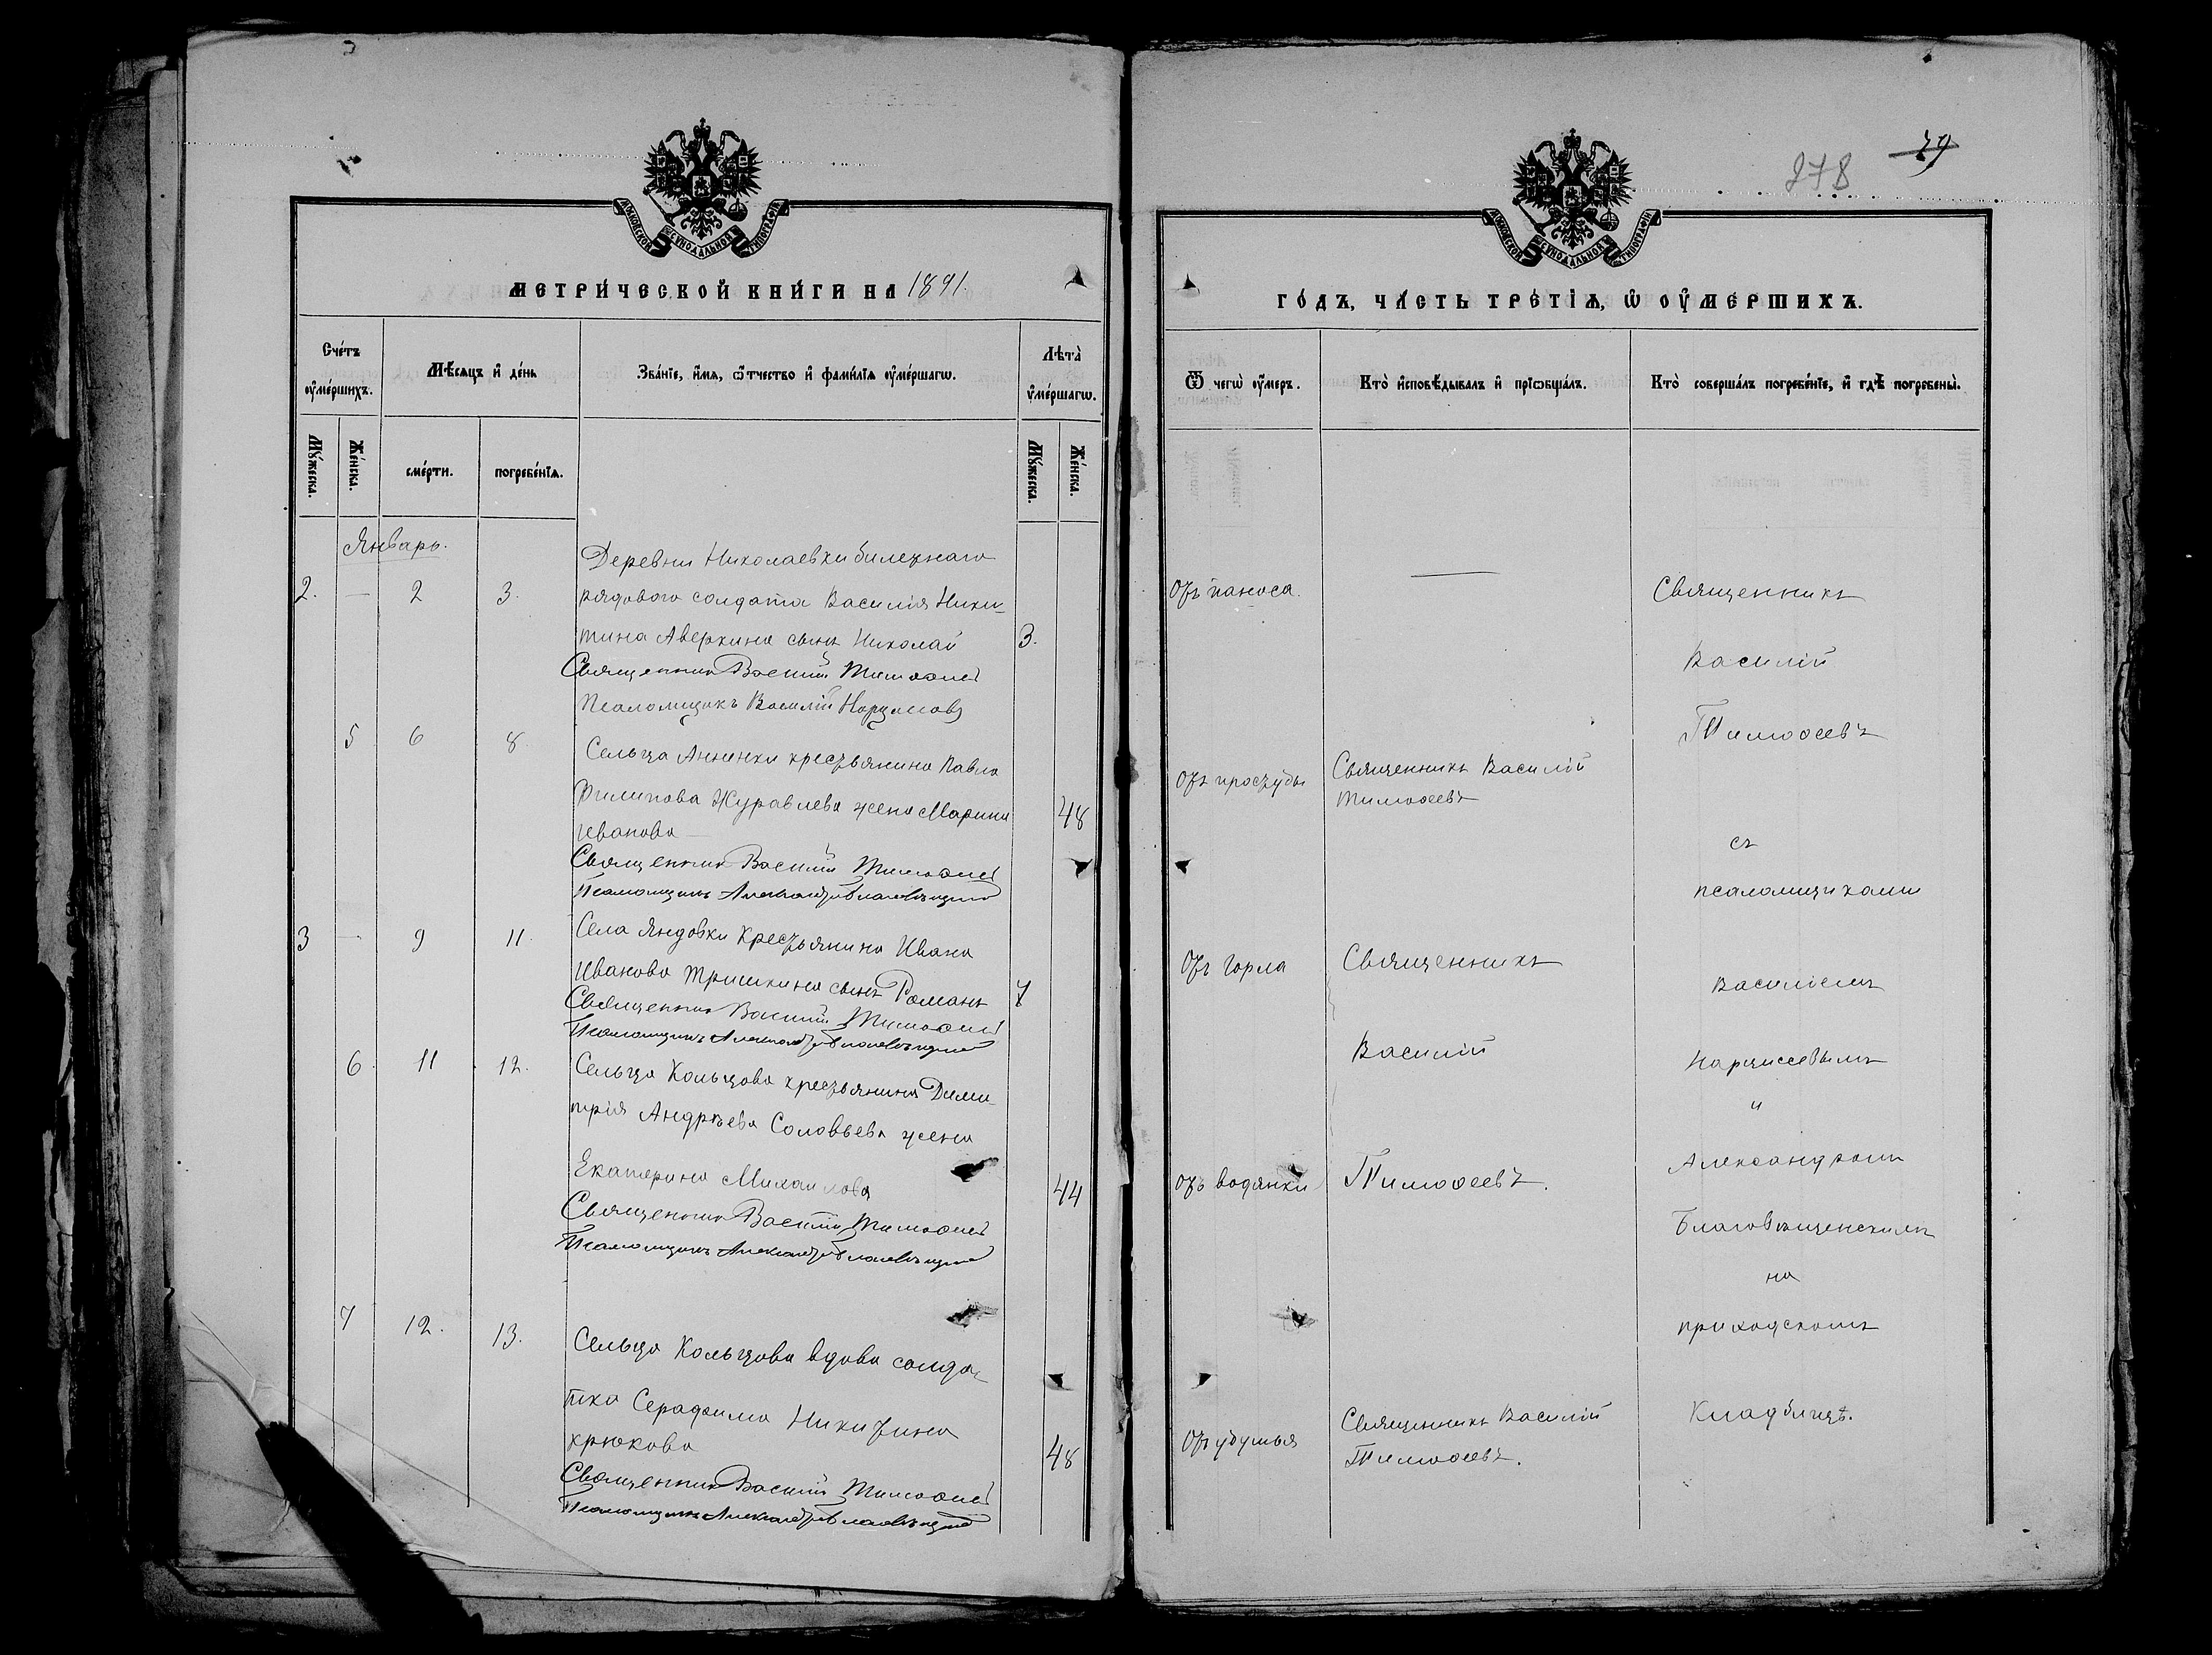 МОСКОВСКОЙ СѴНОДАЛЬНОЙ ТИПОГРАФІИ
МЕТРИ́ЧЕСКОЙ КНИ́ГИ НА 1891.
Сче́тъ ᲂу҆ме́ршихъ.
Мѣ́сяцъ и҆ де́нь
Зва́нїе, и҆́мѧ, ѻ҆́тчество и҆ фами́лїѧ ᲂу҆ме́ршагѡ.
Лѣта̀ ᲂу҆ме́ршагѡ.
Мꙋ́жеска.
Же́нска.
сме́рти.
погребе́нїѧ.
Мꙋ́жеска.
Же́нска.
Январь.
Деревни Николаевки билетнаго
2. — 2 3. рядового солдата Василія Ники-
тина Аверкина сынъ Николай 3.
Священникъ Василій Тимоѳеев
Псаломщикъ Василій Нарциссовъ
5 6 8 Сельца Аннинки крестьянина Павла
Филипова Журавлева жена Марина 48
Иванова —
Священникъ Василій Тимоѳеев
Псаломщикъ Александръ Благовѣщенскій
3 — 9 11. Села Яндовки крестьянина Ивана
Иванова Тришкина сынъ Романъ 7
Священникъ Василій Тимоѳеев
Псаломщикъ Александръ Благовѣщенскій
6. 11 12. Сельца Кольцова крестьянина Дими-
трія Андрѣева Соловьева жена
Екатерина Михаилова 44
Священникъ Василій Тимоѳеев
Псаломщикъ Александръ Благовѣщенскій
7 12. 13. Сельца Кольцова вдова солда-
тка Серафима Никитина
Крюкова 48
Священникъ Василій Тимоѳеев
Псаломщикъ Александръ Благовѣщенскій
278 79
МОСКОВСКОЙ СѴНОДАЛЬНОЙ ТИПОГРАФІИ
ГО́ДЪ, ЧА́СТЬ ТРЕ́ТІѦ, Ѡ҆ ОУ҆МЕ́РШИХЪ.
Ѿ чегѡ̀ ᲂу҆́меръ.
Кто̀ и҆сповѣ́дывалъ и҆ прїѡбща́лъ.
Кто̀ соверша́лъ погребе́нїе, и҆ гдѣ̀ погребены̀.
Отъ паноса. —
Отъ простуды
Священникъ Василій
Тимоѳеевъ
Отъ горла
Священникъ
Василій
Отъ водянки Тимоѳеевъ.
Отъ удушья
Священникъ Василій
Тимоѳеевъ.
Священникъ
Василій
Тимоѳеевъ
съ
псаломщиками
Василіемъ
Нарциссовымъ
и
Александромъ
Благовѣщенскимъ
на
приходскомъ
Кладбищѣ.